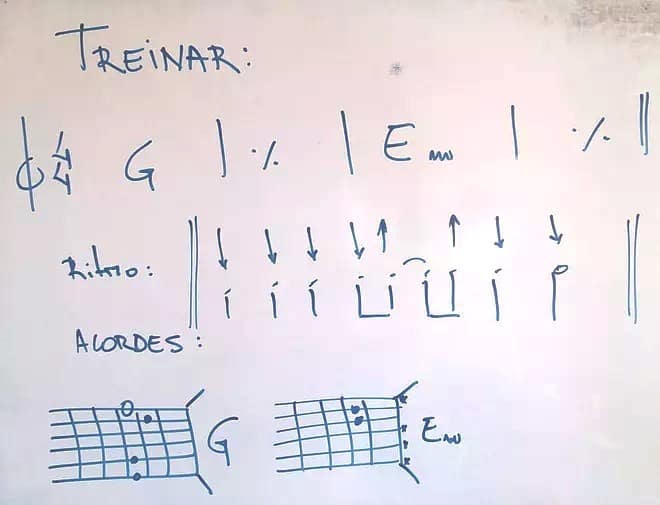 TREINAR:
4/4 G | ٪ | Em | ٪ ||
Ritmo:
ACORDES:
G Em